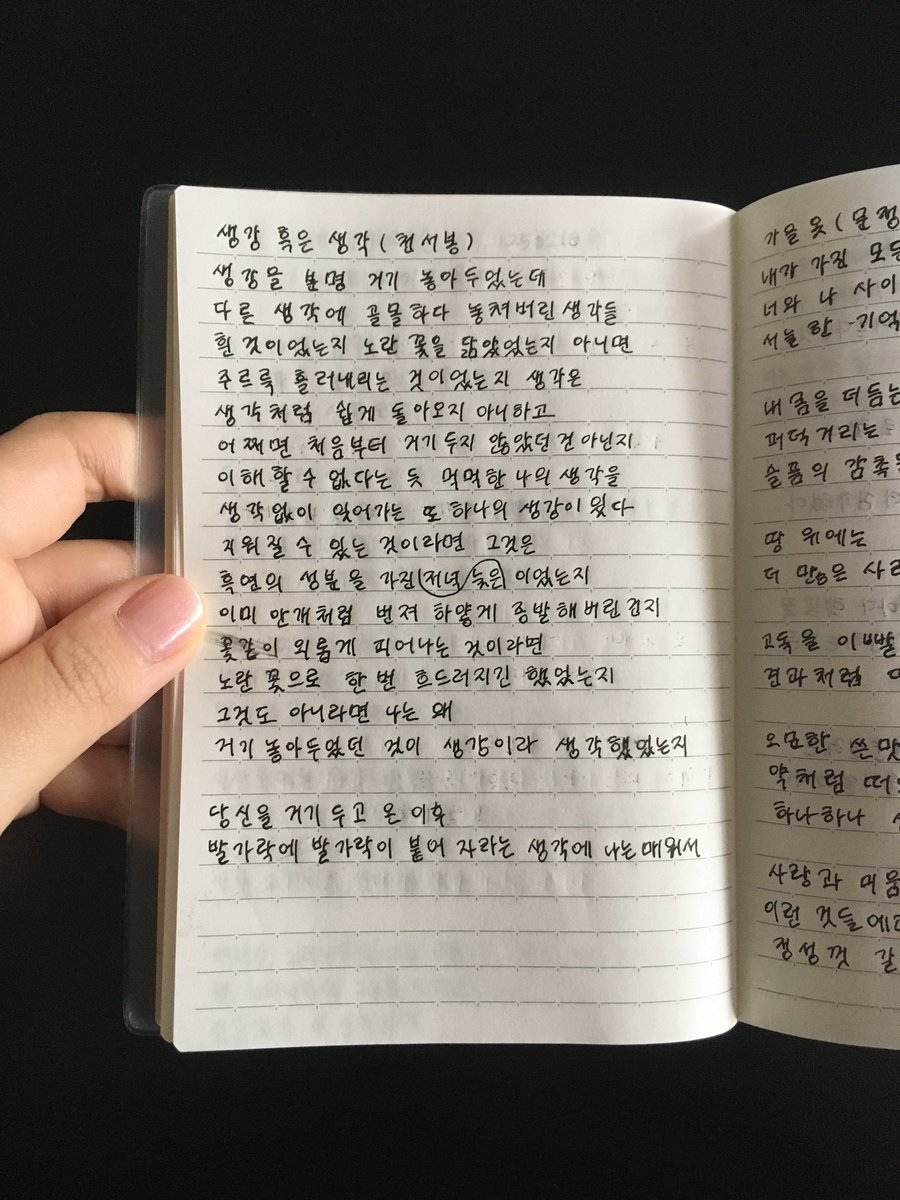 생강 혹은 생각 (천서봉)
생강을 분명 거기 놓아두었는데
다른 생각에 골몰하다 놓쳐버린 생각들
흰 것이었는지 노란 꽃을 닮았었는지 아니면
주르륵 흘러내리는 것이었는지 생각은
생각처럼 쉽게 돌아오지 아니하고
어쩌면 처음부터 거기 두지 않았던 건 아닌지
이해할 수 없다는 듯 먹먹한 나의 생각을
생각없이 잊어가는 또 하나의 생강이 있다
지워질 수 있는 것이라면 그것은
흑연의 성분을 가진 저녁 늦은 이었는지
이미 안개처럼 번져 하얗게 증발해버린 건지
꽃같이 외롭게 피어나는 것이라면
노란 꽃으로 한 번 흐드러지긴 했었는지
그것도 아니라면 나는 왜
거기 놓아두었던 것이 생강이라 생각했었는지
당신을 거기 두고 온 이후
발가락에 발가락이 붙어 자라는 생각에 나는 매워서
가을 옷 (문정
내가 가진 모든
너와 나 사이
서늘한 기억
내 몸을 더듬는
퍼덕거리는
슬픔의 감촉을
땅 위에는
더 많은 사람
고독을 이빨
견과처럼
오묘한 쓴맛
약처럼 떠
하나하나
사랑과 미움
이런 것들에
정성껏 갈